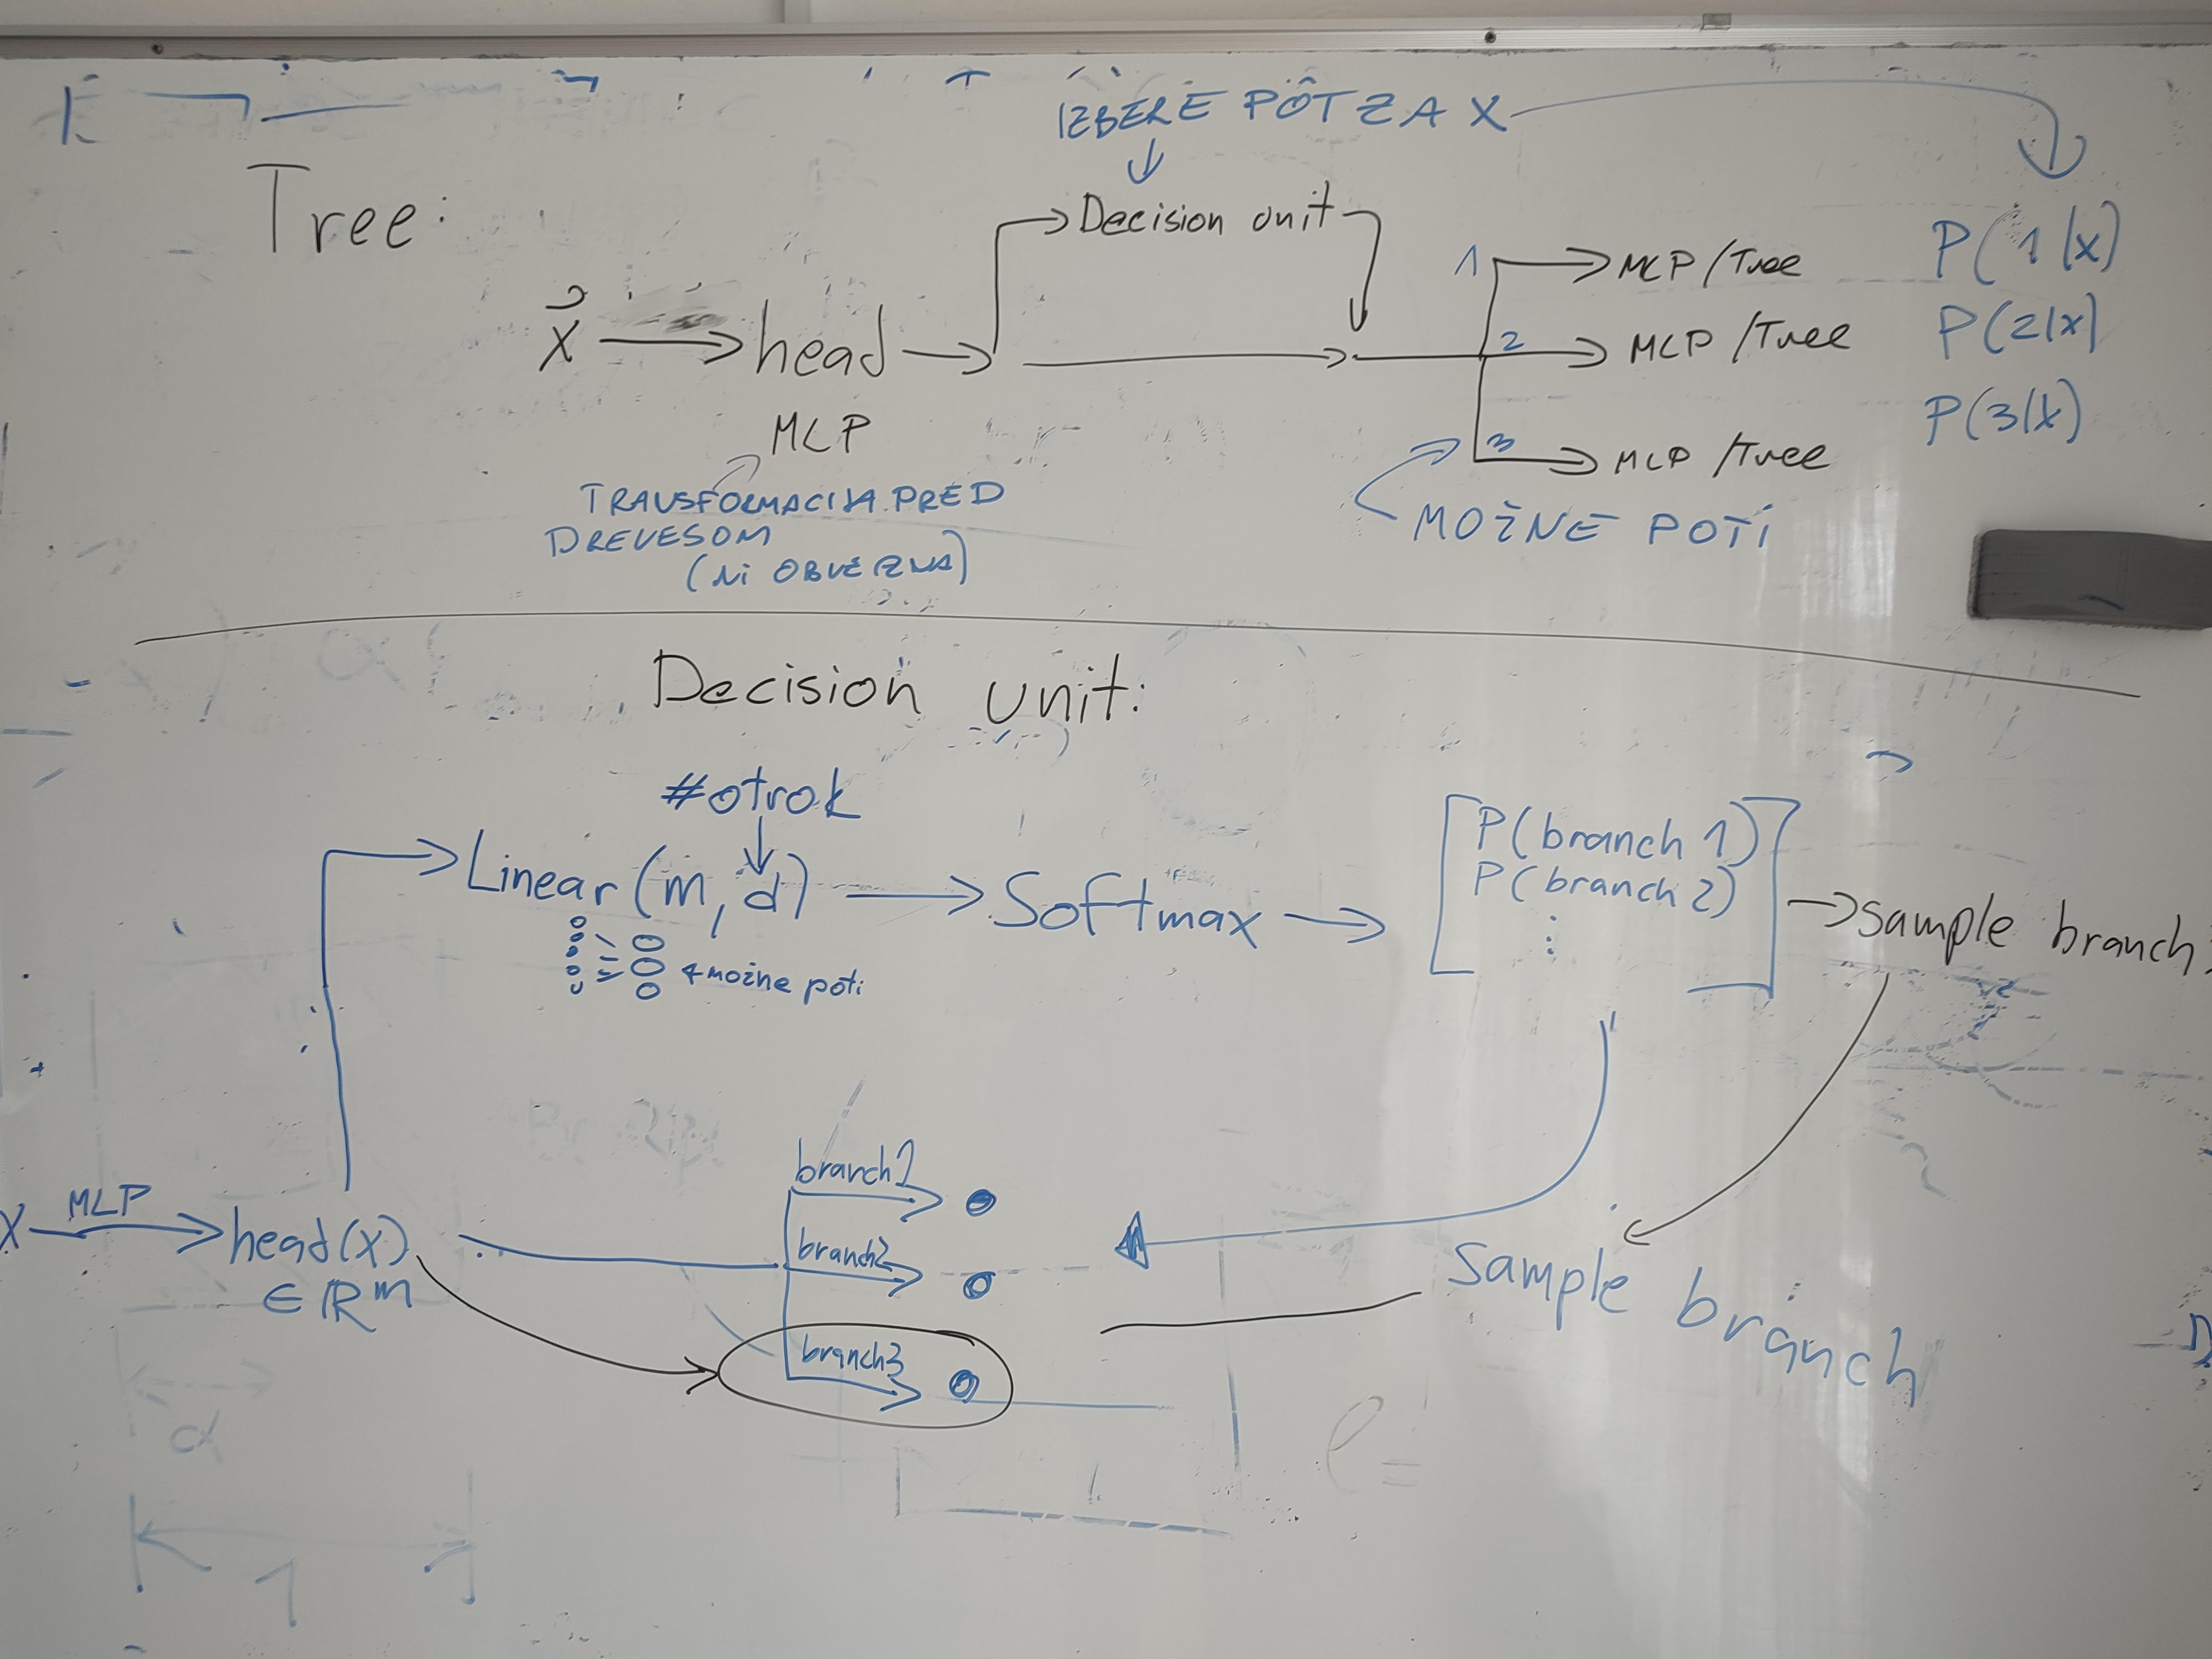 IZBERE POT ZA X
Tree:
Decision unit
x → head →
MLP
1 → MLP/Tree
2 → MLP/Tree
3 → MLP/Tree
P(1|x)
P(2|x)
P(3|x)
TRANSFORMACIJA PRED
DREVESOM
(Ni OBVEZNA)
MOŽNE POTi
Decision unit:
#otrok
Linear(m, d) → Softmax →
P(branch 1)
P(branch 2)
⋮
→ sample branch
možne poti
X MLP → head(x)
∈ ℝᵐ
branch1
branch2
branch3
Sample branch
α
1
ℓ =